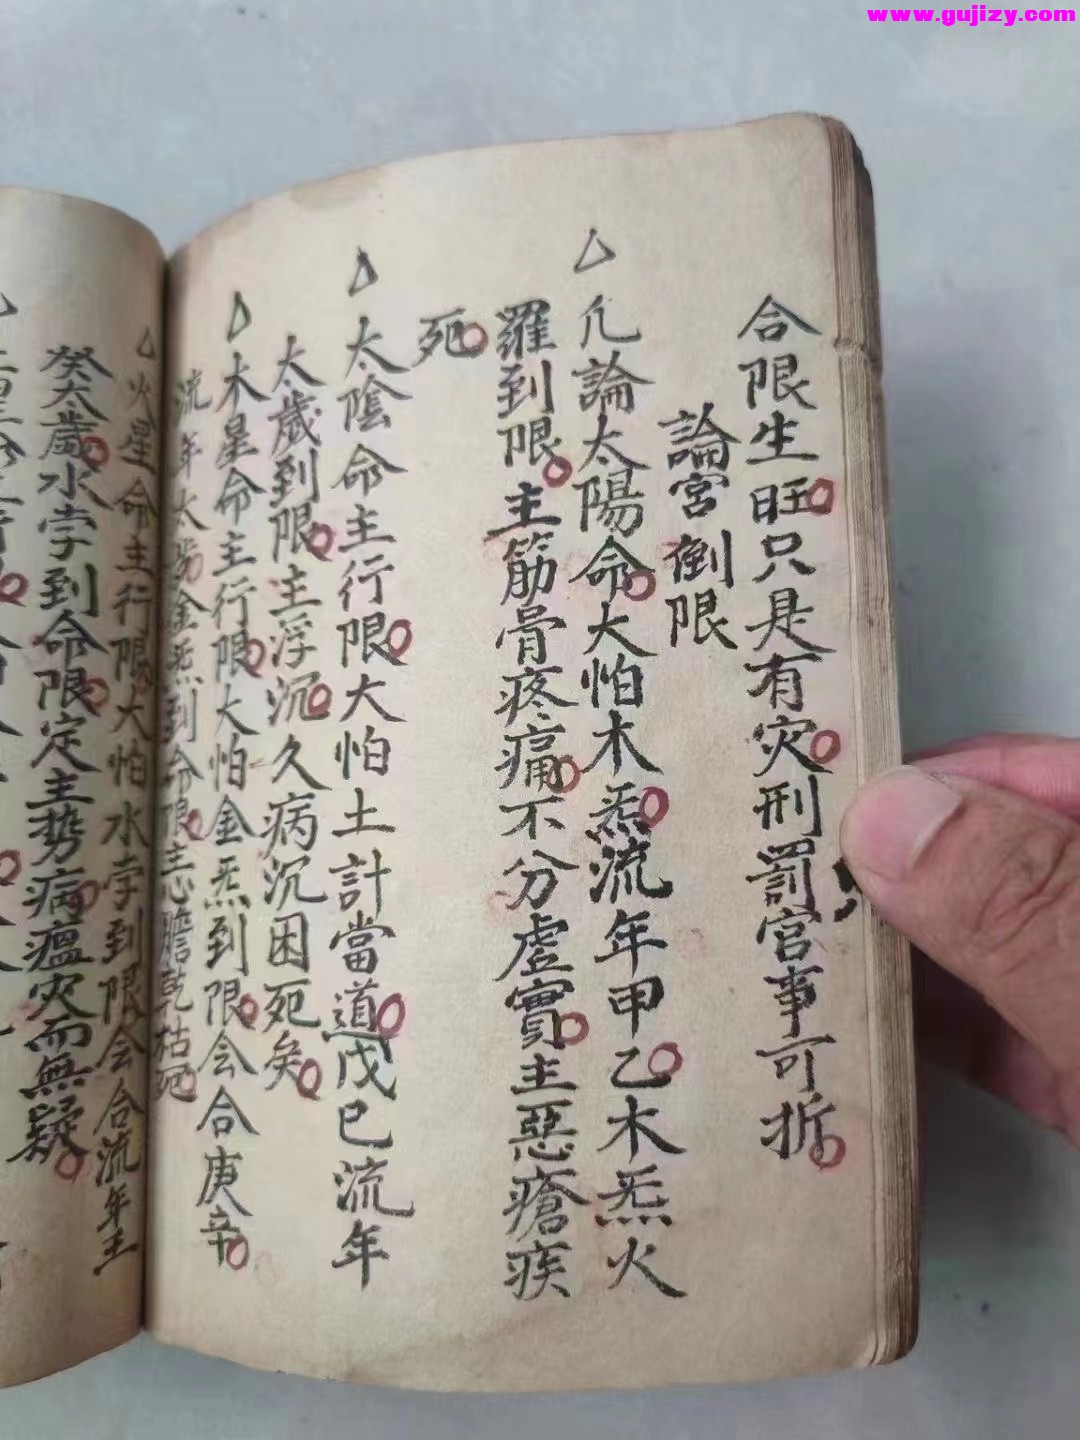 www.gujizy.com
合限生旺只是有灾刑罰官事可折
論宮倒限
凢論太陽命大怕木炁流年甲乙木炁火
羅到限主筋骨疼痛不分虛實主惡瘡疾
死
太陰命主行限大怕土計當道戊巳流年
太歲到限主浮沉久病沉困死矣
木星命主行限大怕金炁到限会合庚辛
流年太歲金炁到命限主心膽乾枯死
火星命主行限大怕水孛到限会合流年壬
癸太歲水孛到命限定主势病瘟灾而無疑